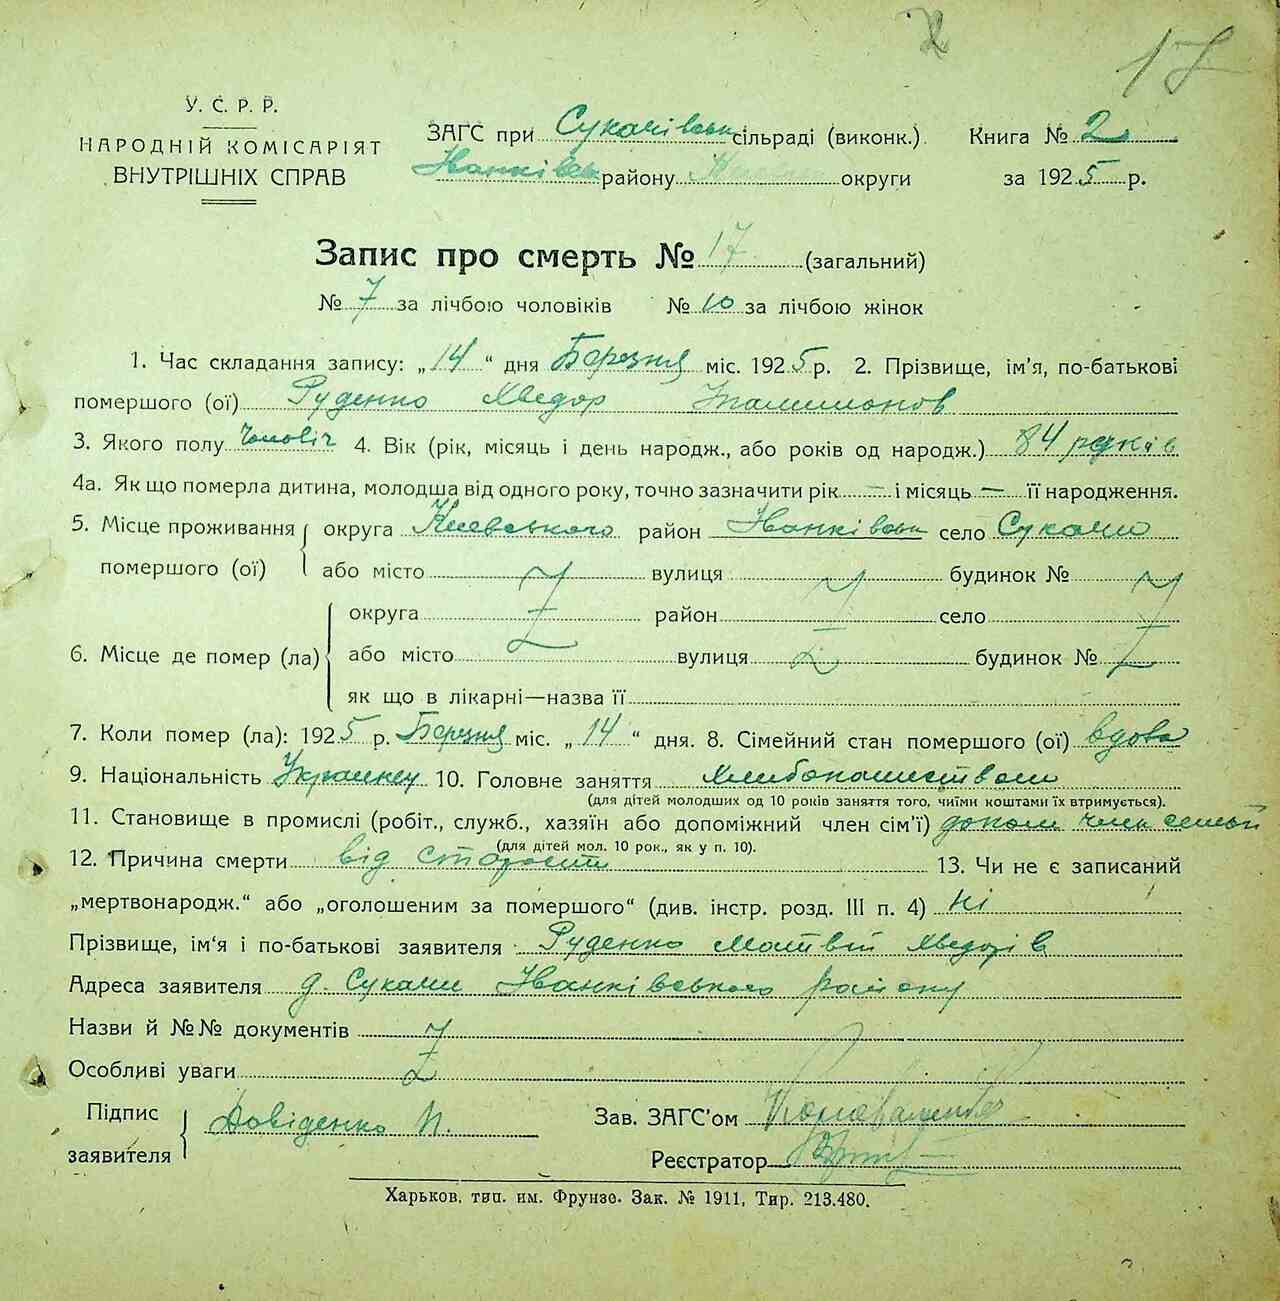 17
У. С. Р. Р.
НАРОДНІЙ КОМІСАРІЯТ
ВНУТРІШНІХ СПРАВ
ЗАГС при Сукачівськ сільраді (виконк.). Книга № 2
Іванківськ району округи за 1925 р.
Запис про смерть № 17 (загальний)
№ 7 за лічбою чоловіків № 10 за лічбою жінок
1. Час складання запису: „14“ дня Березня міс. 1925 р. 2. Прізвище, ім'я, по-батькові
помершого (ої) Руденко Хведор
3. Якого полу Чоловіч 4. Вік (рік, місяць і день народж., або років од народж.) 84 років
4а. Як що померла дитина, молодша від одного року, точно зазначити рік — і місяць — її народження.
5. Місце проживання помершого (ої) округа Киевського район Іванківськ село Сукачи
або місто вулиця будинок №
6. Місце де помер (ла) округа район село
або місто вулиця будинок №
як що в лікарні—назва її
7. Коли помер (ла): 1925 р. Березня міс. „14“ дня. 8. Сімейний стан помершого (ої) вдова
9. Національність Украинец 10. Головне заняття Хлибопашеством
(для дітей молодших од 10 років заняття того, чиїми коштами їх втримується).
11. Становище в промислі (робіт., служб., хазяїн або допоміжний член сім'ї) допом член семьй
(для дітей мол. 10 рок., як у п. 10).
12. Причина смерти від старости 13. Чи не є записаний
„мертвонародж.“ або „оголошеним за помершого“ (див. інстр. розд. III п. 4) Ні
Прізвище, ім'я і по-батькові заявителя Руденко Матвій Хведорів
Адреса заявителя д. Сукачи Іванківського району
Назви й №№ документів
Особливі уваги
Підпис заявителя Давіденко И.
Зав. ЗАГС'ом
Реєстратор
Харьков, тип. им. Фрунзе. Зак. № 1911, Тир. 213.480.